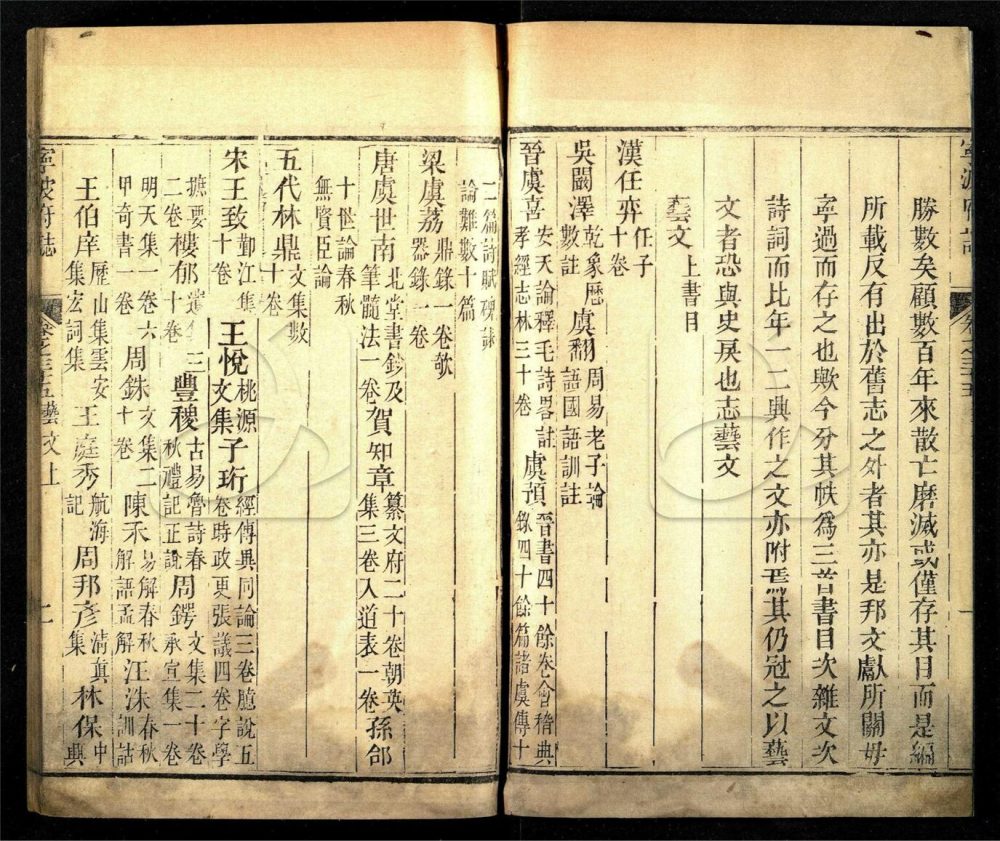 寧波府志
卷之三十五
一
勝數矣顧數百年來散亡磨滅或僅存其目而是編
所載反有出於舊志之外者其亦是邦文獻所關毋
寧過而存之也歟今分其帙為三首書目次雜文次
詩詞而比年一二典作之文亦附焉其仍冠之以藝
文者恐與史戾也志藝文
藝文上書目
漢任奕任子十卷
吳闞澤乾象曆數註 虞翻周易老子論語國語訓註
晉虞喜安天論釋毛詩畧註孝經志林三十卷 虞預晉書四十餘卷會稽典錄四十餘篇諸虞傳十
二篇詩賦碑誄論難數十篇
梁虞荔鼎錄一卷欹器錄一卷
唐虞世南北堂書鈔及筆髓法一卷 賀知章纂文府二十卷朝英集三卷入道表一卷 孫郃
十世論春秋無賢臣論
五代林鼎文集數十卷
宋王致鄞江集十卷 王悅桃源文集 子珩經傳異同論三卷臆說五卷時政更張議四卷字學
摭要二卷 樓郁遺集三十卷 豐稷古易魯詩春秋禮記正說 周鍔文集二十卷承宣集一卷
明天集一卷六甲奇書一卷 周銖文集二十卷 陳禾易解春秋解語孟解 汪洙春秋訓詁
王伯庠歷山集雲安集宏詞集 王庭秀航海記 周邦彥清真集 林保中興
寧波府誌
卷之三十五藝文上
二